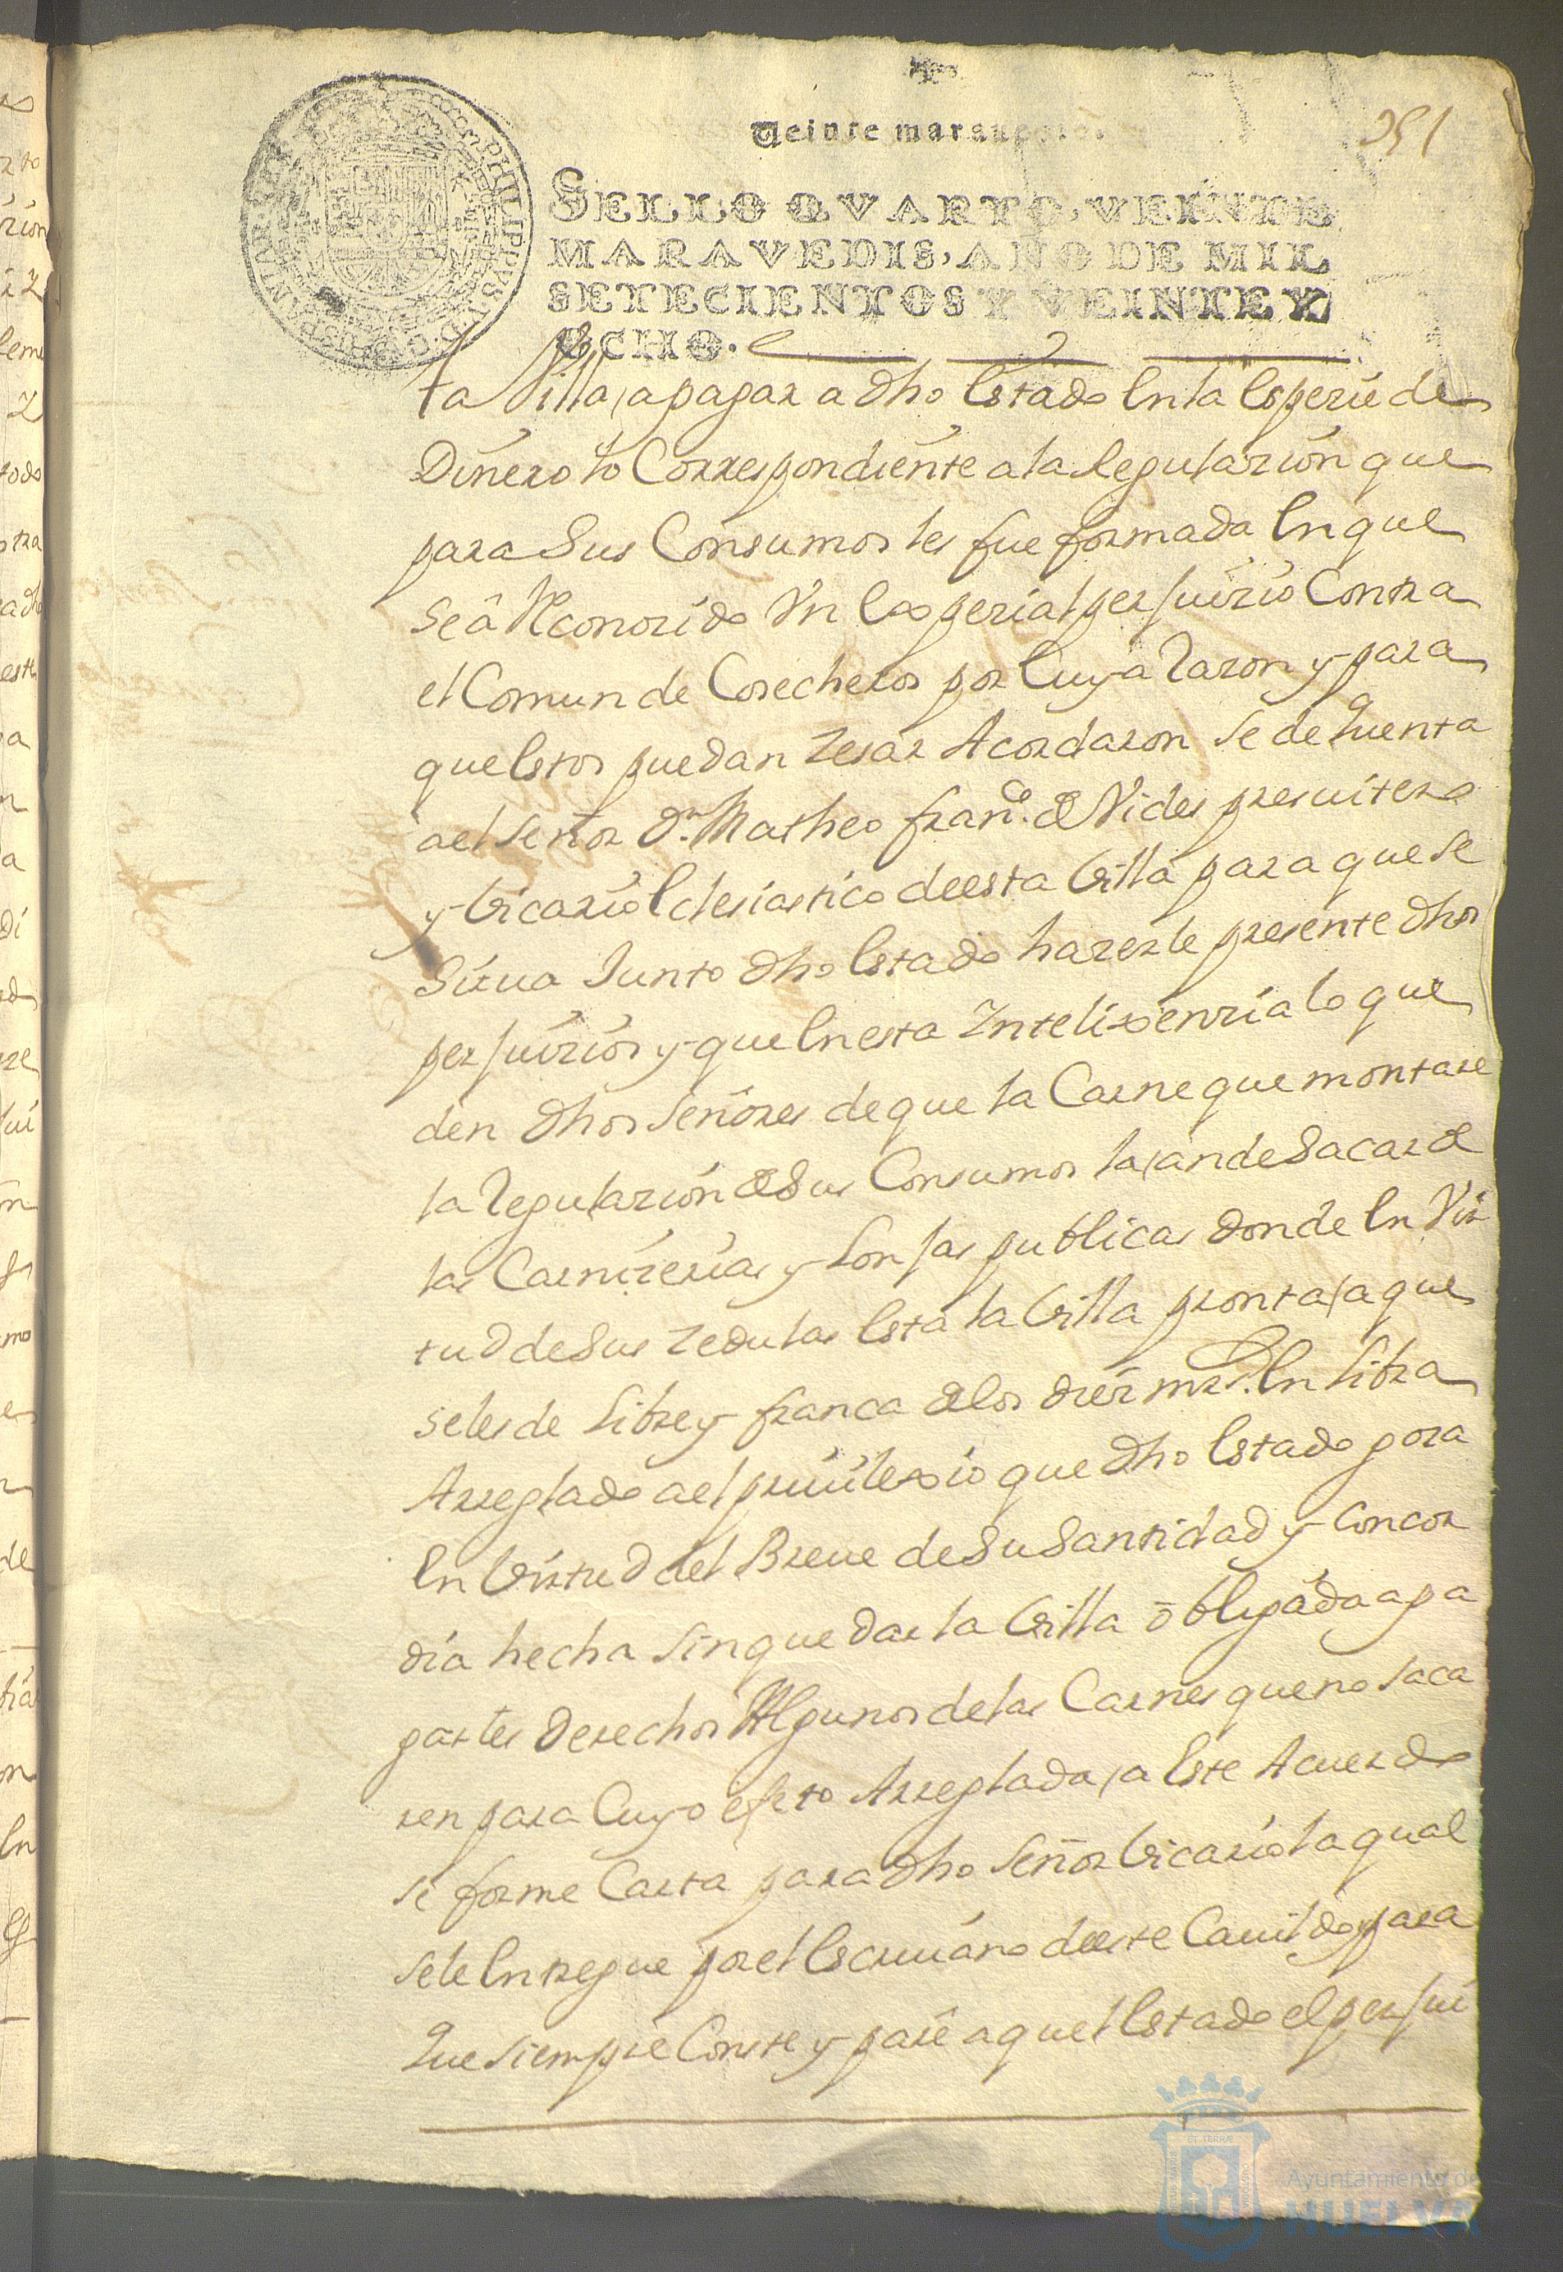 351
Veinte maravedis.
SELLO QVARTO, VEINTE
MARAVEDIS, AÑO DE MIL
SETECIENTOS Y VEINTE Y
OCHO.
ta Villa, a pagar a dho estado en la especie de
Dinero lo Correspondiente a la Regulazion que
para sus Consumos les fue formada en que
se â Reconozido Vn espezial perjuizio Contra
el Comun de Cosecheros por cuya razon y para
que estos puedan zesar Acordaron se de quenta
a el señor Dn. Matheo franco. de Vides presuitero
y Vicario eclesiastico de esta Villa para que se
sirua Junto dho estado hazerle presente dhos
perjuizios y que en esta Intelixenzia lo que
den dhos señores de que la Carne que montare
la regulazion de sus Consumos la an de sacar de
las Carnizerias y Lonjas publicas donde en Vir
tud de sus zedulas esta la Villa pronta, a que
se les de libre y franca de los diez mrs. en libra
Arreglado a el priuilexio que dho estado goza
en Virtud del Breue de su Santidad y Concor
dia hecha sin quedar la Villa obligada a pa
garles derechos Algunos de las Carnes que no saca
ren para cuyo efecto Arreglada, a este Acuerdo
se forme Carta para dho señor Vicario la qual
se le entregue por el escriuano deeste Cauildo y para
que siempre Conste y pare a quel estado el perjui
Ayuntamiento de
HUELVA